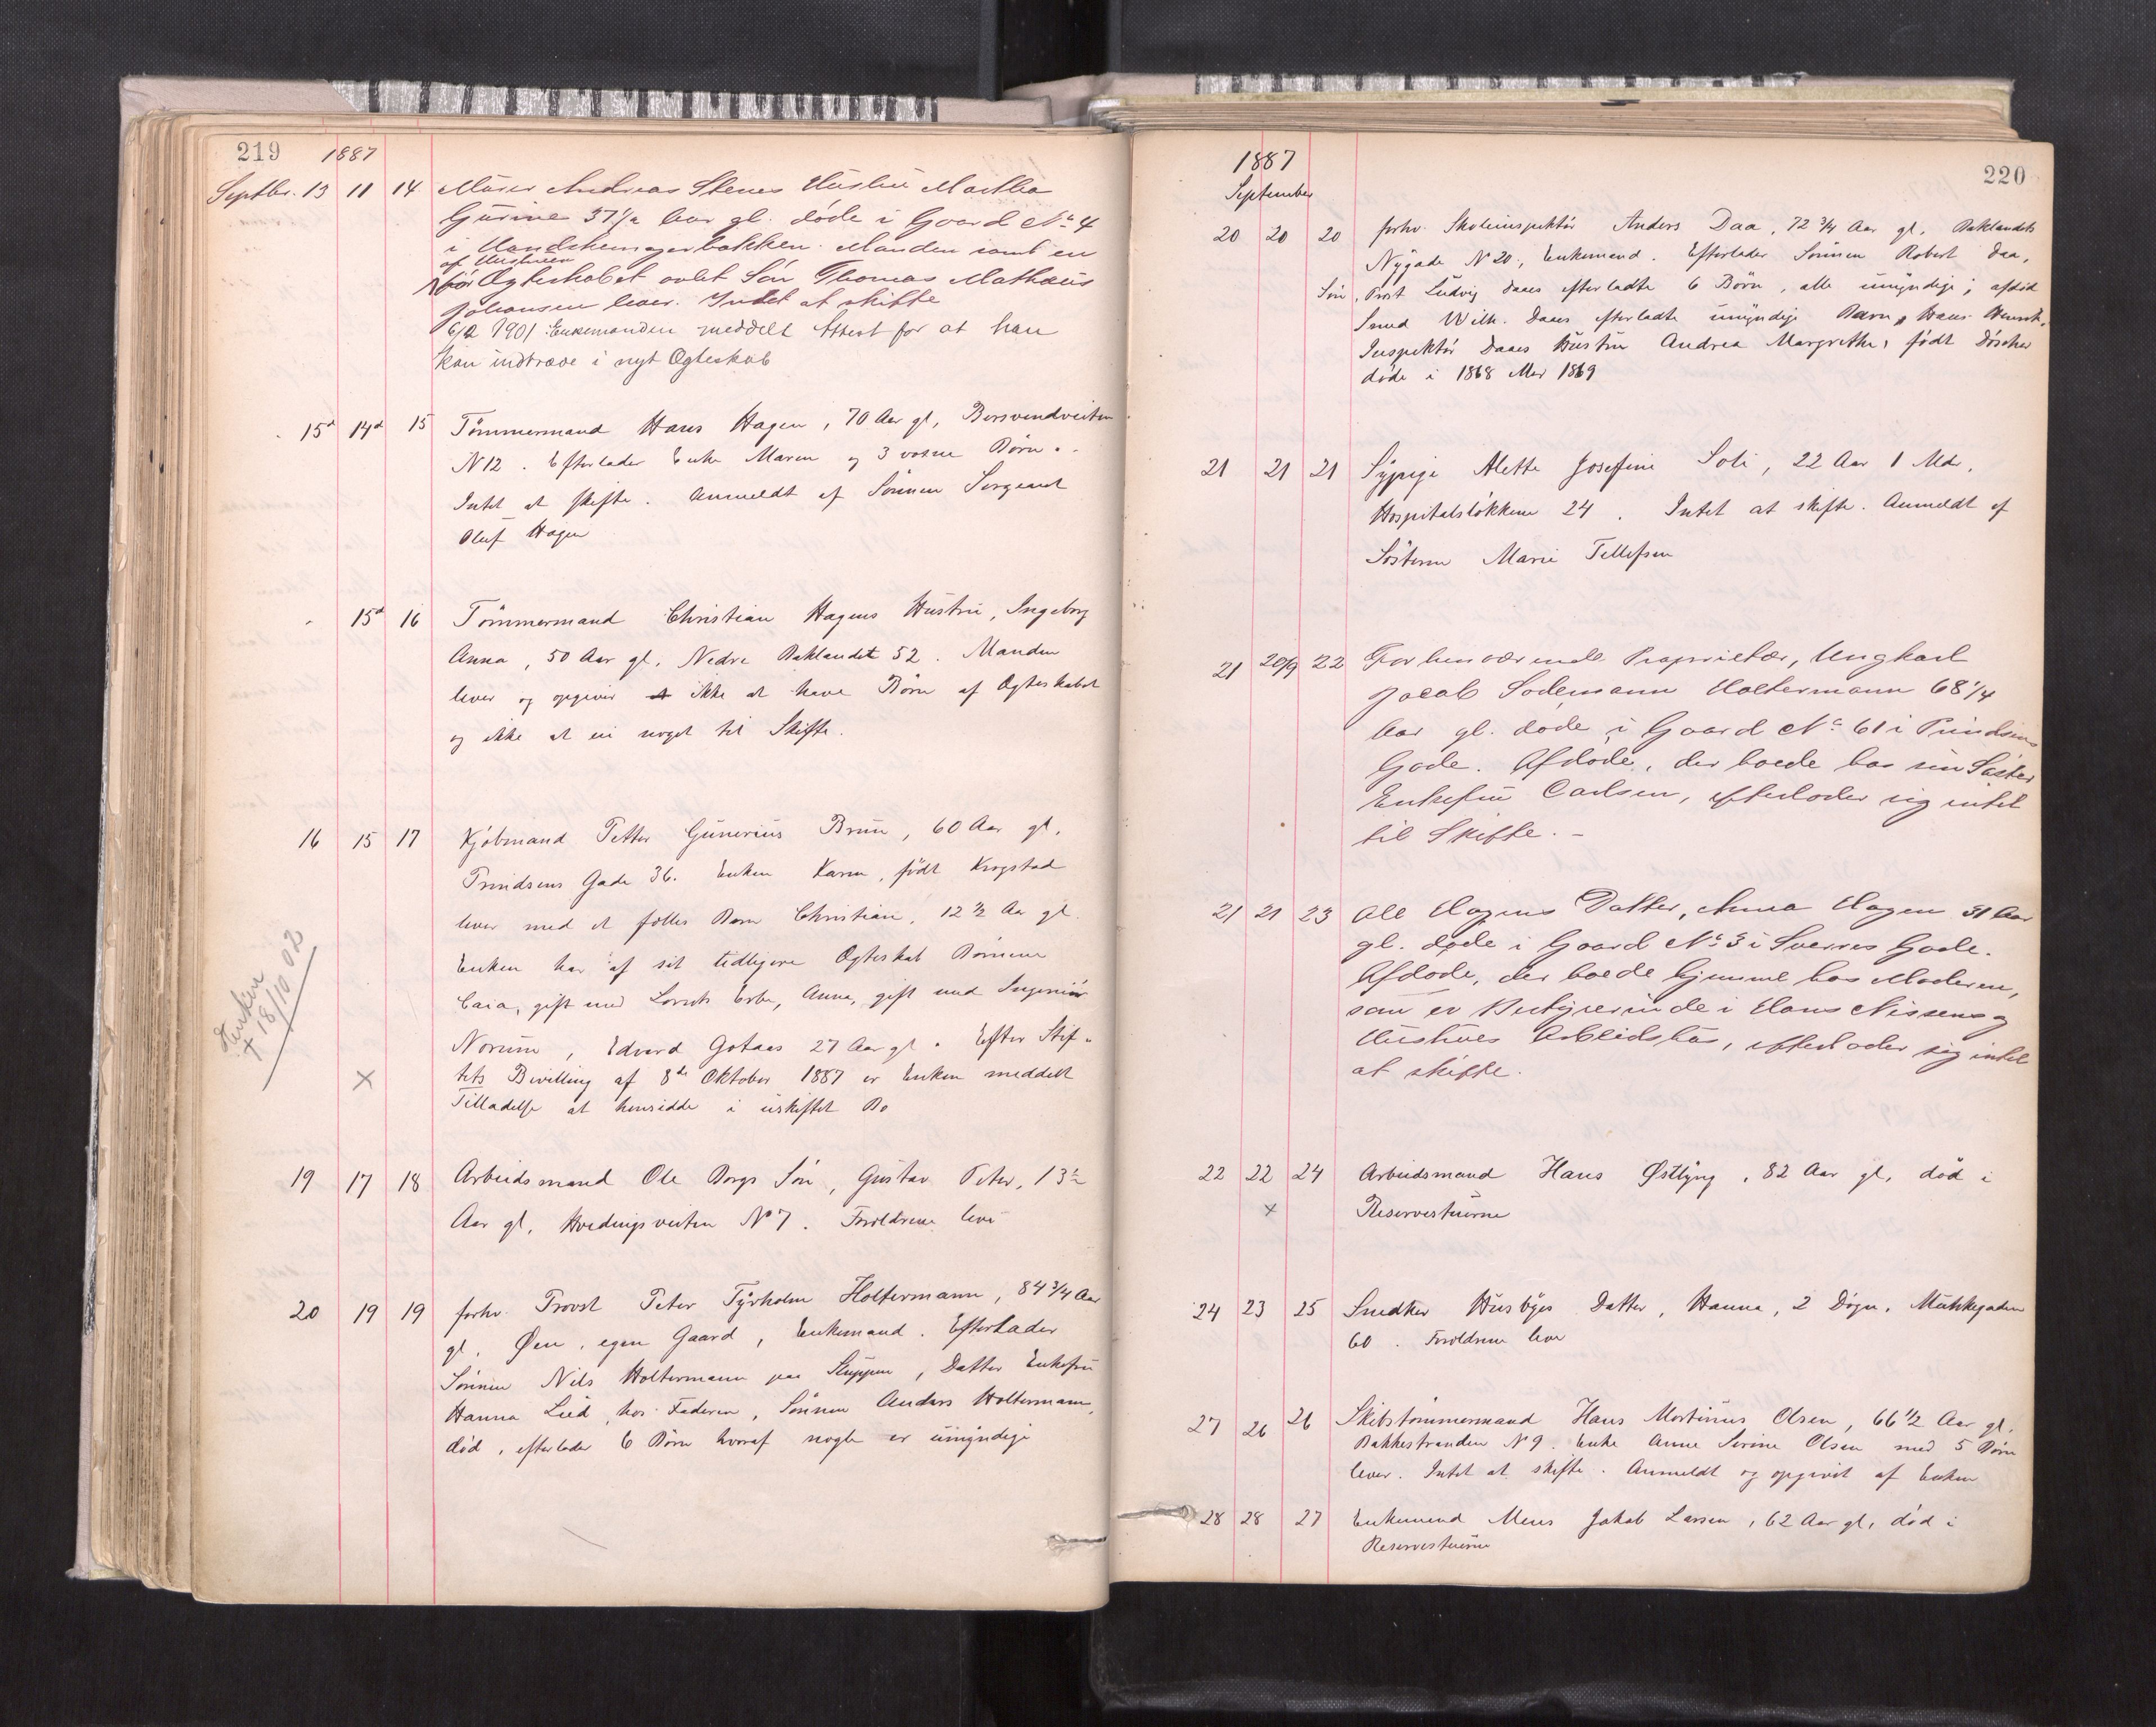 219 1887
Septbr. 13 11 14 Murer Andreas Stenes Hustru Martha
Gurine 37 1/2 Aar gl. døde i Gaard No 4
i Handskemagerbakken. Manden samt en
af Hustruen
før Ægteskabet avlet Søn Thomas Mathæus
Johansen lever. Intet at skifte
6/2 1901 Enkemanden meddelt Attest for at han
kan indtræde i nyt Ægteskab
15d 14d 15 Tömmermand Hans Hagen, 70 Aar gl, Bersvendveiten
N 12. Efterlader Enke Maren og 3 voksne Börn.
Intet at skifte. Anmeldt af Sönnen Sergeant
Oluf Hagen
15d 16 Tömmermand Christian Hagens Hustru, Ingeborg
Anna, 50 Aar gl, Nedre Baklandet 52. Manden
lever og opgiver ikke at have Börn af Ægteskabet
og ikke at eie noget til Skifte.
16 15 17 Kjöbmand Petter Gunerius Bruun, 60 Aar gl,
Prindsens Gade 36. Enken Karen, födt Krogstad
lever med et fælles Barn Christian, 12 1/2 Aar gl.
Enken har af sit tidligere Ægteskab Börnene
Caia, gift med Lorents Erbe, Anna, gift med Ingeniör
Norum, Edvard Gotaas 27 Aar gl. Efter Stif-
tets Bevilling af 8de Oktober 1887 er Enken meddelt
Tilladelse at hensidde i uskiftet Bo
Enken
+ 18/10 02
x
19 17 18 Arbeidsmand Ole Borgs Sön, Gustav Peter, 13
Aar gl, Hvedingsveiten No 7. Forældrene lever
20 19 19 forhv. Provst Peter Tyrholm Holtermann, 84 3/4 Aar
gl. Øen, egen Gaard, Enkemand. Efterlader
Sönnen Nils Holtermann paa Sluppen, Datter Enkefru
Hanna Lied, hos Faderen, Sönnen Anders Holtermann,
död, efterlader 6 Börn hvoraf nogle er umyndige
1887 220
September
20 20 20 forhv. Skoleinspektör Anders Daa, 72 3/4 Aar gl, Baklandets
Nygade N 20, Enkemand. Efterlader Sönnen Robert Daa,
Sön, Provst Ludvig Daaes efterladte 6 Börn, alle umyndige; afdöd
Smed Wilh. Daaes efterladte umyndige Barn, Hans
Inspektör Daaes Hustru Andrea Margrethe, födt Döscher
döde i 1868 eller 1869
21 21 21 Sypige Alette Josefine Soli, 22 Aar 1 Md.
Hospitalslökkene 24. Intet at skifte. Anmeldt af
Söstren Marie Tellefsen
21 20/9 22 Forhenværende Proprietær, Ungkarl
Jacob Sodemann Holtermann 68 1/4
Aar gl. døde i Gaard No 61 i Prindsens
Gade. Afdøde, der boede hos sin Søster
Enkefru Carlsen, efterlader sig intet
til Skifte. -
21 21 23 Ole Hagens Datter, Anna Hagen 31 Aar
gl. døde i Gaard No 3 i Sverres Gade.
Afdøde, der boede hjemme hos Moderen,
som er Bestyrerinde i Hans Nissens og
Hustrues Arbeidshus, efterlader sig intet
at skifte.
22 22 24 Arbeidsmand Hans Østbyng, 82 Aar gl, död i
x Reservestuerne
24 23 25 Snedker Husbyes Datter, Hanna, 2 Dögn, Munkegaden
60. Forældrene lever
27 26 26 Skibstömmermand Hans Mortinus Olsen, 66 1/2 Aar gl,
Bakkestranden N 9. Enke Anne Serine Olsen med 5 Börn
lever. Intet at skifte. Anmeldt og opgivet af Enken
28 28 27 Enkemand Mens Jakob Larsen, 62 Aar gl, död i
Reservestuerne